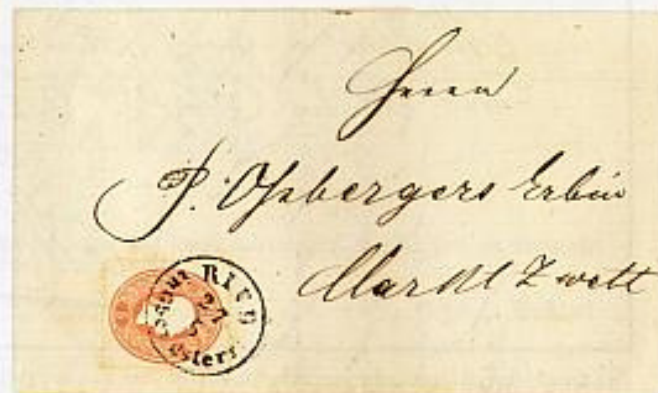 Herrn
P. Ofsbergers Erbin
Markt Zwettl
RIED
27
5